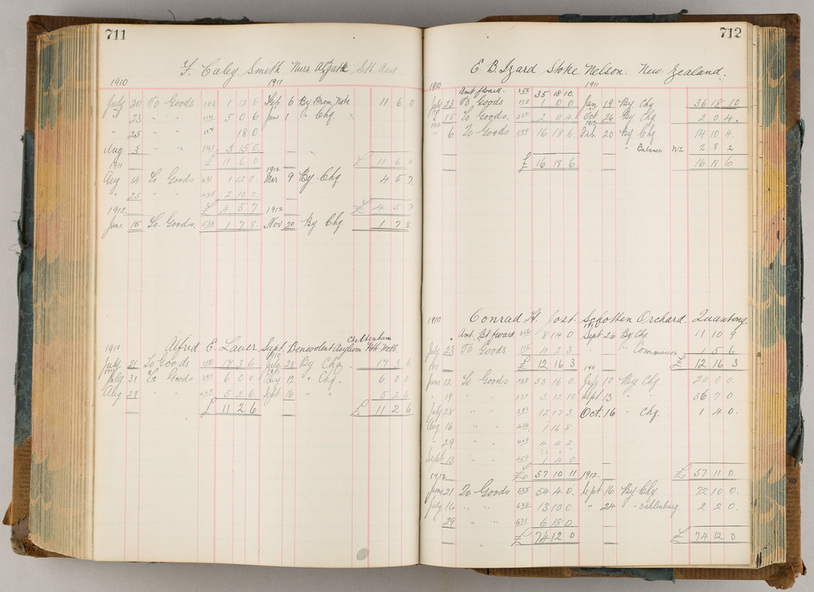 711
F. Caley Smith
1910 1911
July 20 To Goods 1 12 0 Sept 6 By Prom Note 11 6 0
" 23 " " 5 0 6 June 1 " Chq
" 25 " " 18 0
Aug 3 " " 3 15 0
£ 11 6 0 £ 11 6 0
1911 1912
Aug 14 To Goods 1 12 0 Mar 9 By Chq 4 5 7
" 25 " "
£ 4 5 7 £ 4 5 7
1912 1912
June 15 To Goods 1 7 8 Nov 20 By Chq 1 7 8
1910 Alfred E. Lauer, Supt. Benevolent Asylum Cheltenham
July 21 To Goods 17 3 6 July 28 By Chq 17 3 6
July 31 To Goods 6 0 0 Aug 12 " Chq 6 0 0
Aug 29 " " 5 2 6 Sept 16 " " 5 2 6
£ 11 2 6 £ 11 2 6
712
E. B. Izard Stoke Nelson. New Zealand.
1910 1911
Amt fward. 35 18 10
July 23 To Goods 1 0 0 Jan 19 By Chq 36 18 10
" 15 To Goods 2 0 4 Oct 26 By Chq 2 0 4
" 6 To Goods 16 18 6 Feb. 20 By Chq 14 10 4
" Balance 2 8 2
£ 16 18 6 16 18 6
1910 Conrad H. Jost. Schotten Orchard Quantong
Amt. Bt fward 8 14 0 Sept 26 By Chq 11 10 9
July 23 To Goods " Commission 1 5 6
£ 12 16 3 £ 12 16 3
June 12 To Goods 33 16 0 July 10 By Chq 20 0 0
" 19 " " 3 12 10 Sept 13 " " 36 7 0
July 28 " " 12 17 3 Oct. 16 " Chq. 1 4 0
Aug 16 " " 1 16 8
" 29 " " 4 4 2
Sept 13 " " 1 4 0
£ 57 10 11 £ 57 11 0
1912 1912
June 21 To Goods 54 4 0 Sept 16 By Chq 72 10 0
July 16 " " 13 10 0 " 24 " 2 2 0
" 29 " " 6 18 0
£ 74 12 0 £ 74 12 0